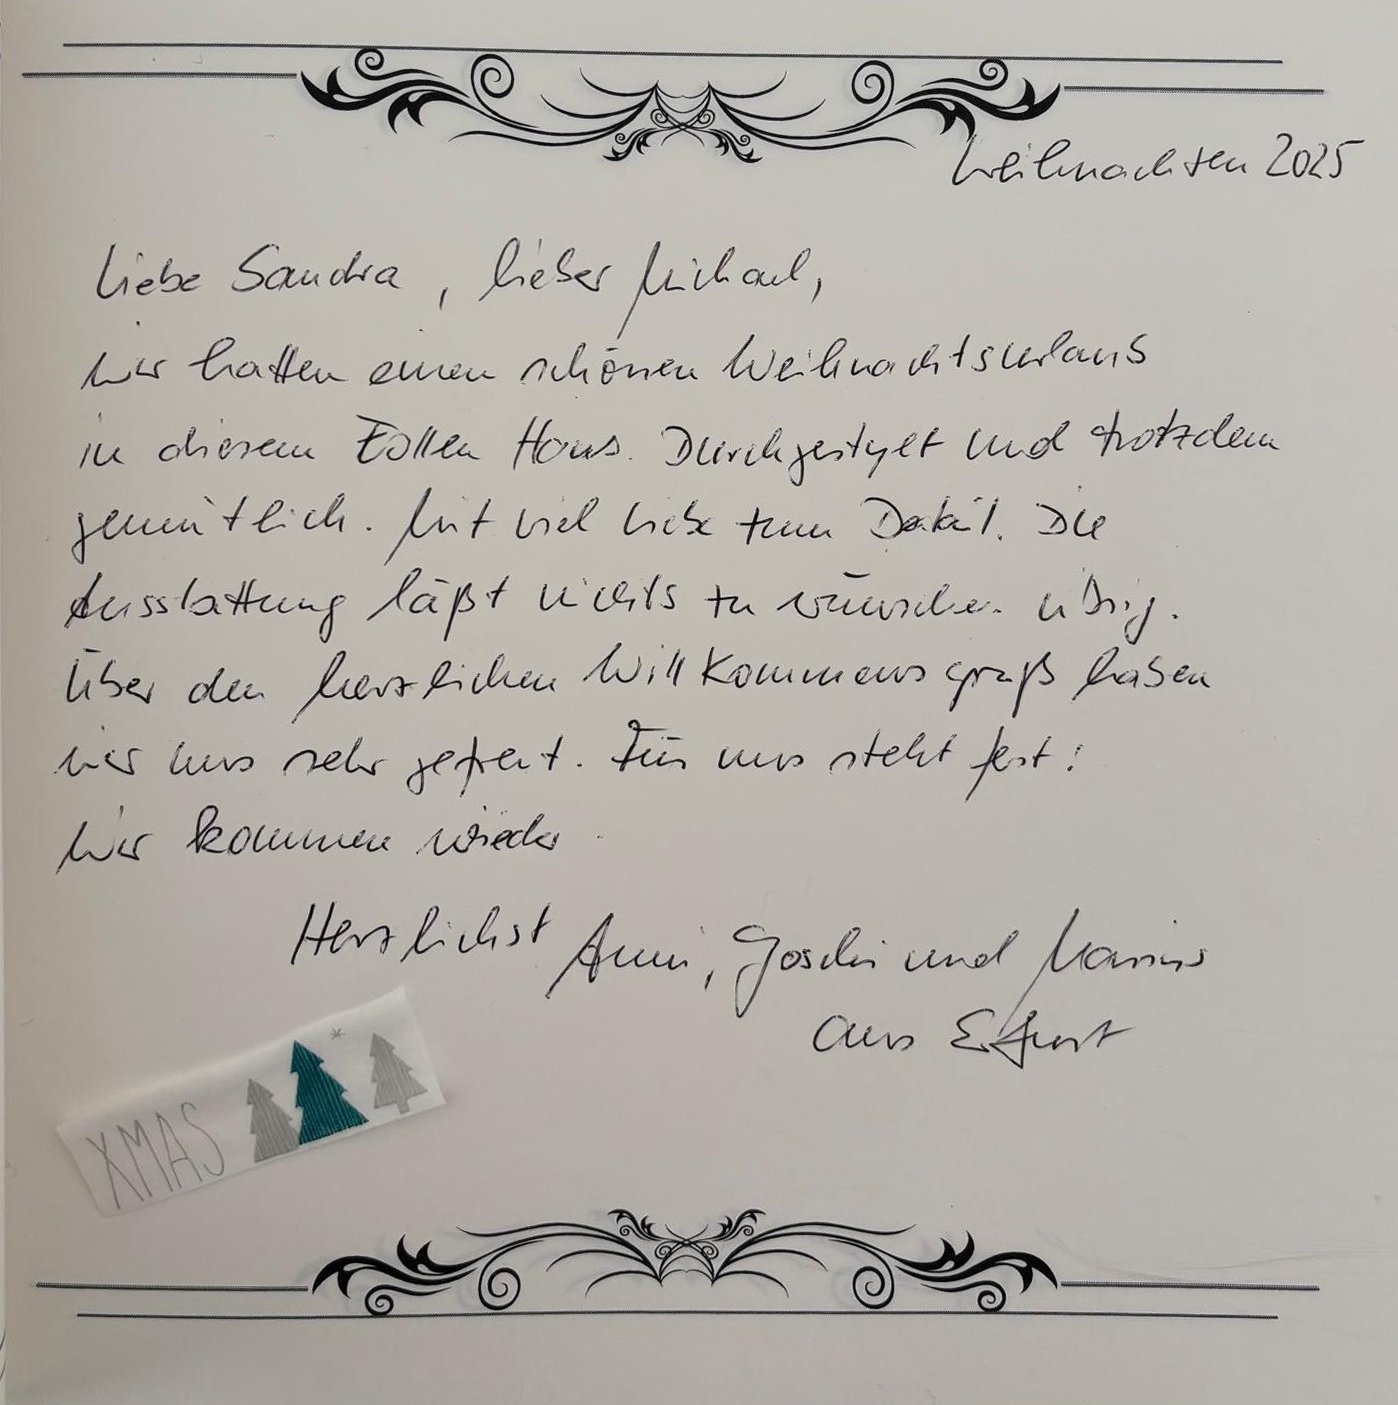 Weihnachten 2025
Liebe Sandra, lieber Michael,
wir hatten einen schönen Weihnachtsurlaub
in diesem tollen Haus. Durchgestylt und trotzdem
gemütlich. Mit viel Liebe zum Detail. Die
Ausstattung läßt nichts zu wünschen übrig.
Über den herzlichen Willkommensgruß haben
wir uns sehr gefreut. Für uns steht fest:
Wir kommen wieder
Herzlichst Anni, und Marius
aus Erfurt
XMAS